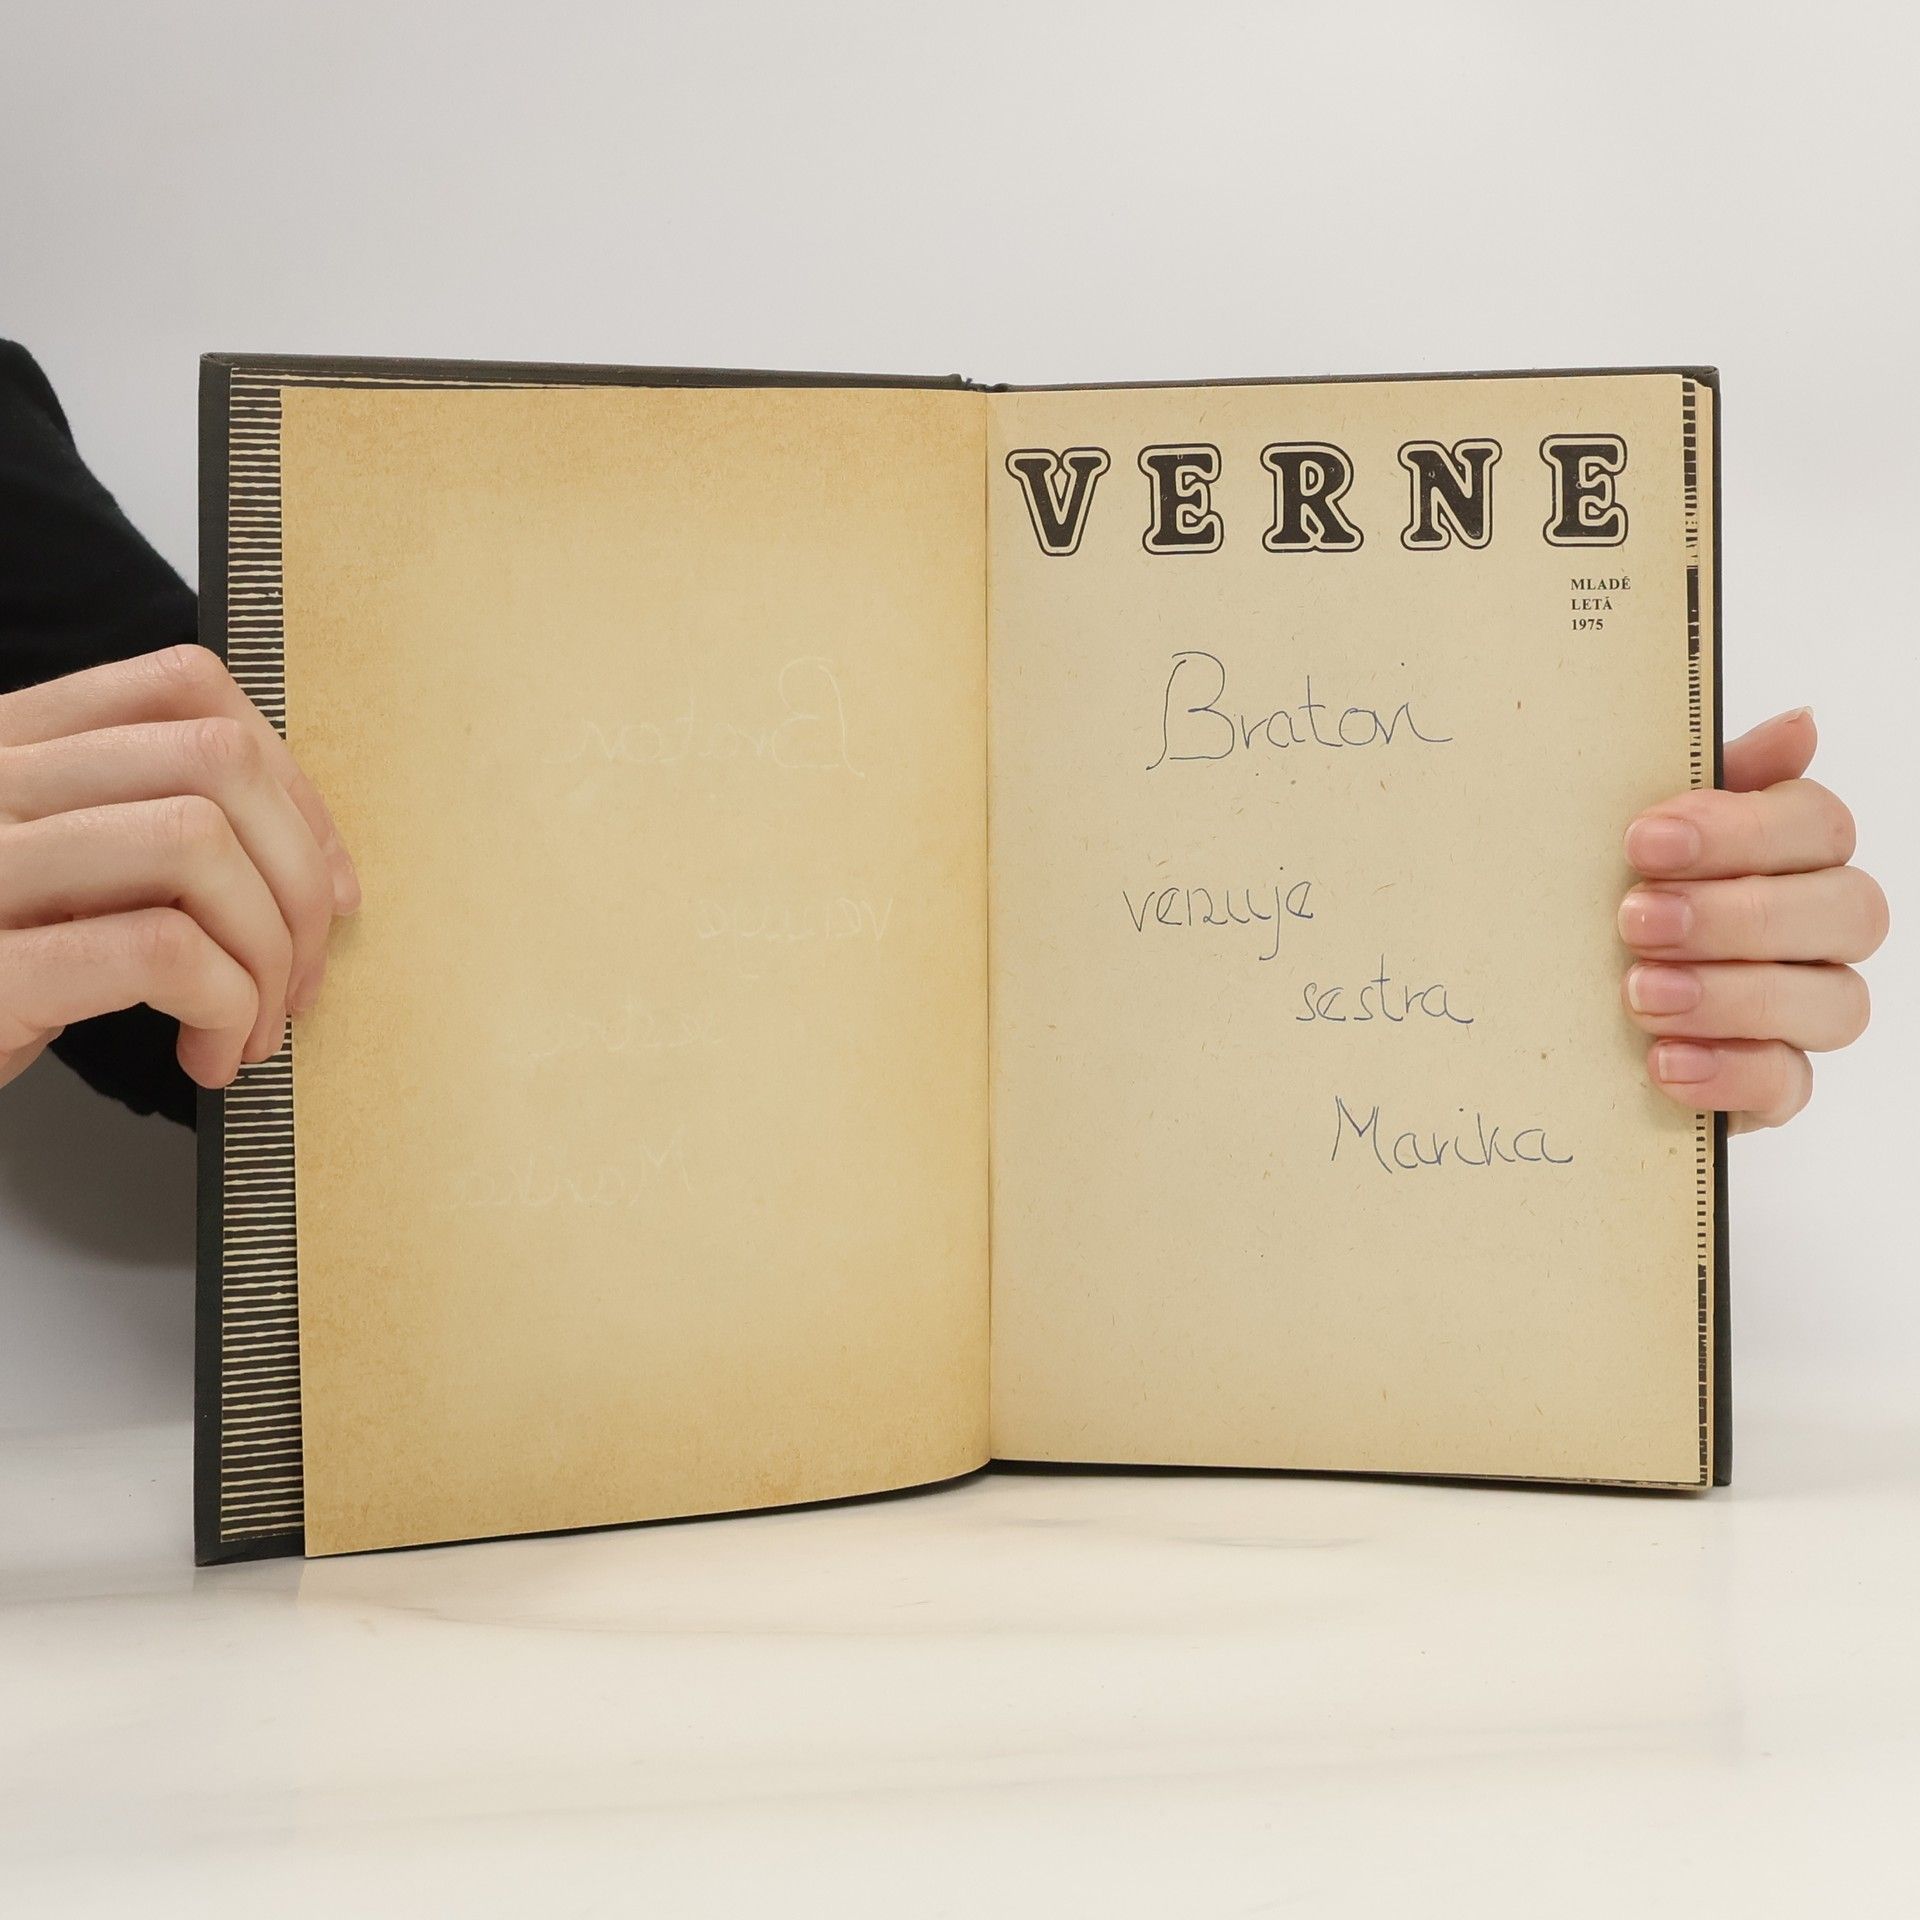 VERNE
MLADÉ
LETÁ
1975
Bratovi
venuje
sestra
Marika